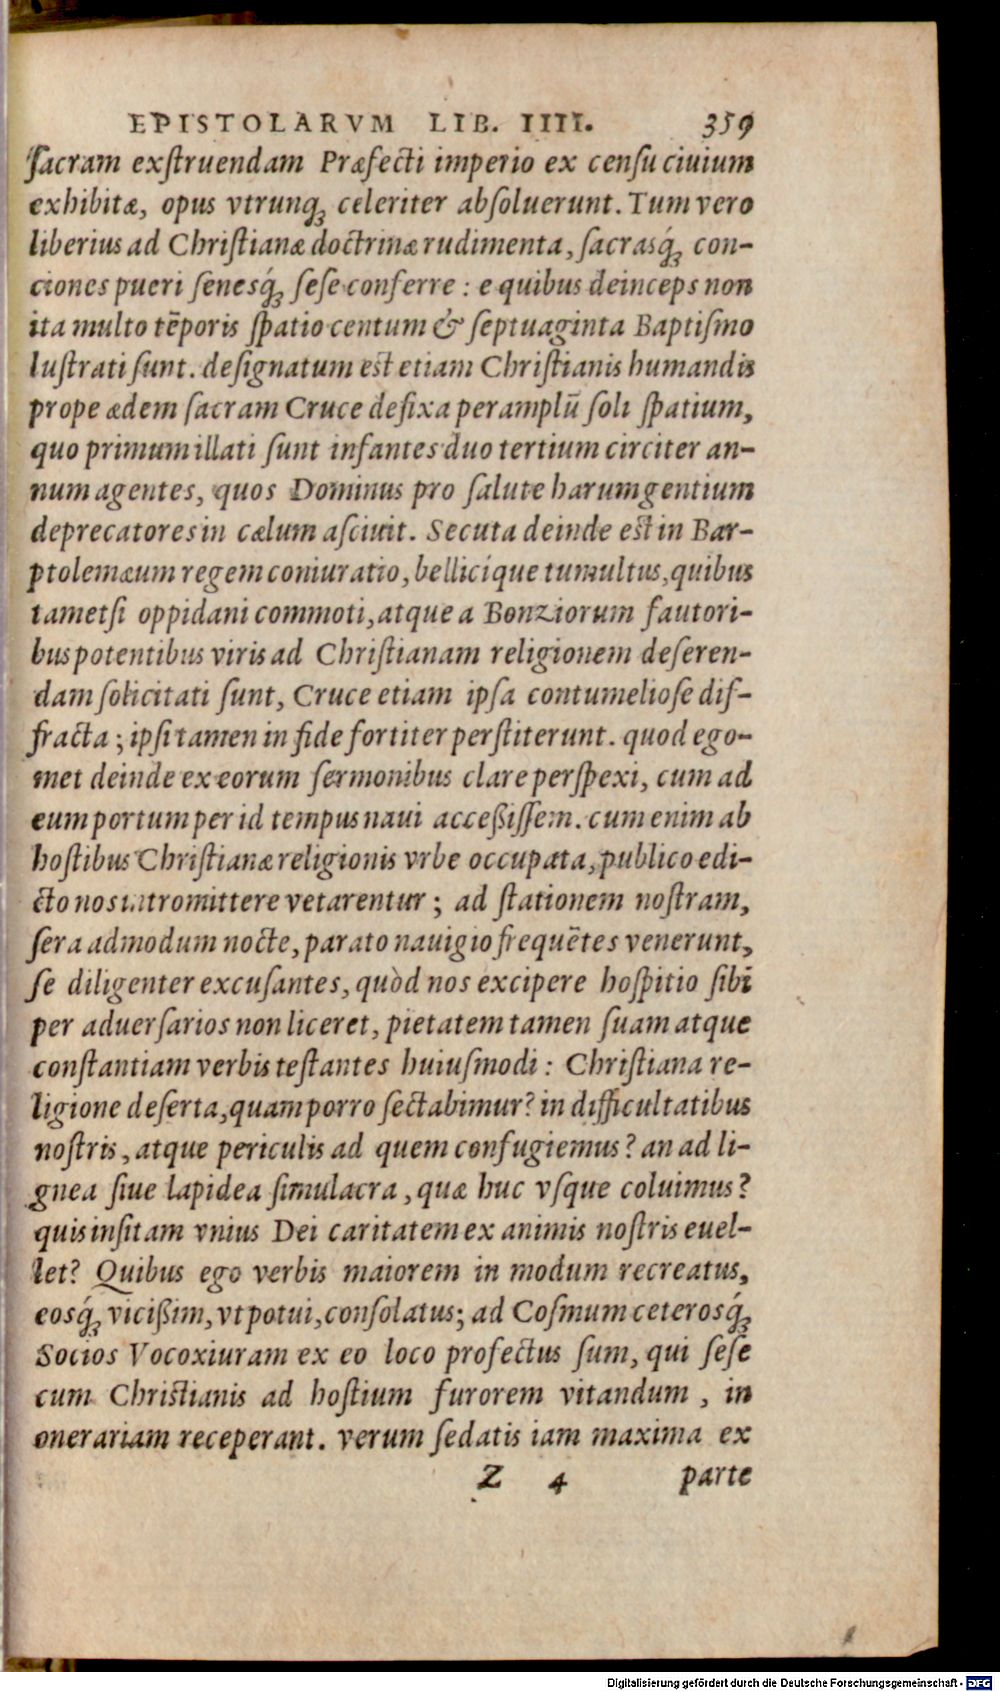 EPISTOLARVM LIB. IIII. 359
ſacram exſtruendam Præfecti imperio ex cenſu ciuium
exhibitæ, opus vtrunq́ꝫ celeriter abſoluerunt. Tum vero
liberius ad Chriſtianæ doctrinæ rudimenta, ſacrasq́ꝫ con-
ciones pueri ſenesq́ꝫ ſeſe conferre : e quibus deinceps non
ita multo tēporis ſpatio centum & ſeptuaginta Baptiſmo
luſtrati ſunt. deſignatum est etiam Chriſtianis humandis
prope ædem ſacram Cruce defixa peramplū ſoli ſpatium,
quo primum illati ſunt infantes duo tertium circiter an-
num agentes, quos Dominus pro ſalute harum gentium
deprecatores in cælum aſciuit. Secuta deinde est in Bar-
ptolemæum regem coniuratio, bellicíque tumultus, quibus
tametſi oppidani commoti, atque a Bonziorum fautori-
bus potentibus viris ad Chriſtianam religionem deſeren-
dam ſolicitati ſunt, Cruce etiam ipſa contumelioſe dif-
fracta ; ipſi tamen in fide fortiter perſtiterunt. quod ego-
met deinde ex eorum ſermonibus clare perſpexi, cum ad
eum portum per id tempus naui acceßiſſem. cum enim ab
hoſtibus Chriſtianæ religionis vrbe occupata, publico edi-
cto nos intromittere vetarentur ; ad ſtationem noſtram,
ſera admodum nocte, parato nauigio frequētes venerunt,
ſe diligenter excuſantes, quòd nos excipere hoſpitio ſibi
per aduerſarios non liceret, pietatem tamen ſuam atque
conſtantiam verbis teſtantes huiuſmodi : Chriſtiana re-
ligione deſerta, quam porro ſectabimur? in difficultatibus
noſtris, atque periculis ad quem confugiemus? an ad li-
gnea ſiue lapidea ſimulacra, quæ huc vſque coluimus?
quis inſitam vnius Dei caritatem ex animis noſtris euel-
let? Quibus ego verbis maiorem in modum recreatus,
eosq́ꝫ vicißim, vt potui, conſolatus; ad Coſmum ceterosq́ꝫ
Socios Vocoxiuram ex eo loco profectus ſum, qui ſeſe
cum Christianis ad hoſtium furorem vitandum , in
onerariam receperant. verum ſedatis iam maxima ex
Z 4 parte
Digitalisierung gefördert durch die Deutsche Forschungsgemeinschaft - DFG